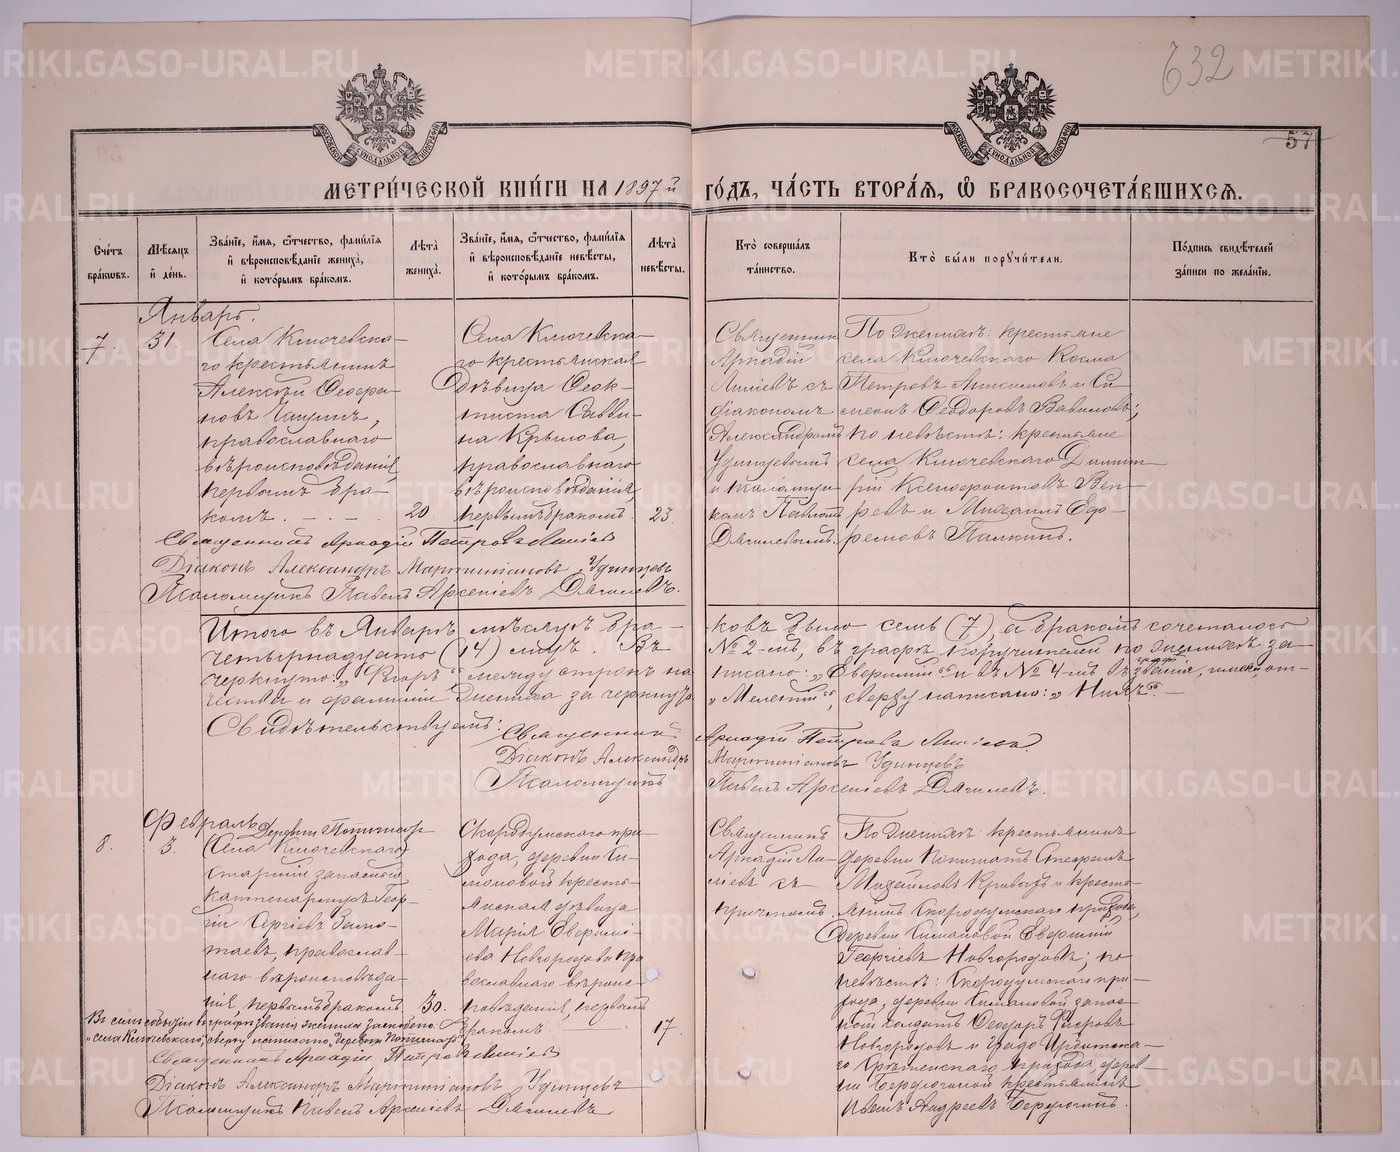 632
57
МЕТРИ́ЧЕСКОЙ КНИ́ГИ НА 1897 й ГО́ДЪ, ЧА́СТЬ ВТОРА́Я, Ѡ БРАКОСОЧЕТА́ВШИХСЯ.
Сче́тъ бра́кѡвъ.
Мѣ́сяцъ и҆ де́нь.
Зва́нїе, и҆́мя, ѻ҆́тчество, фами́лїя и҆ вѣроисповѣ́данїе жениха̀, и҆ кото́рымъ бра́комъ.
Лѣ́та жениха̀.
Зва́нїе, и҆́мя, ѻ҆́тчество, фами́лїя и҆ вѣроисповѣ́данїе невѣ́сты, и҆ кото́рымъ бра́комъ.
Лѣ́та невѣ́сты.
Кто̀ соверша́лъ та́инство.
Кто̀ бы́ли поручи́тели.
По́дпись свидѣ́телей за́писи по жела́нїю.
Январь.
7.
31.
Села Ключевска-
го крестьянинъ
Алексѣй Феофа-
новъ
православнаго
вѣроисповѣданія
первымъ бра-
комъ.
20
Села Ключевска-
го крестьянская
дѣвица Феок-
тиста Савви-
на Крылова,
православнаго
вѣроисповѣданія
первымъ бракомъ.
23
Священникъ
Аркадій
съ
діакономъ
Александромъ
Удинцевымъ
и псаломщи-
комъ Павломъ
Дягилевымъ.
По женихѣ: крестьяне
села Ключевского Косма
Петровъ Анисимовъ и Си-
меонъ Феодоровъ Вавиловъ;
по невѣстѣ: крестьяне
села Ключевского Димит-
рій Ксенофонтовъ Веп-
ревъ и Михаилъ Еф-
ремовъ Палкинъ.
Священникъ Аркадій Петровъ
Діаконъ Александръ Мартиніановъ Удинцевъ
Псаломщикъ Павелъ Арсеніевъ Дягилевъ.
Итого въ Январѣ мѣсяцѣ бра-
ковъ было семь (7), а бракомъ сочеталось
четырнадцать (14) лицъ. Въ
№ 2-мъ, въ графѣ поручителей по женихѣ за-
черкнуто: „ между строкъ на-
писано: „Еверимій“ и въ № 4-мъ въ графѣ званія, имени, от-
чества и фамиліи жениха зачеркнуто
„Мелетій“, сверху написано: „Нилъ“.
Свидѣтельствуемъ:
Священникъ Аркадій Петровъ
Діаконъ Александръ Мартиніановъ Удинцевъ
Псаломщикъ Павелъ Арсеніевъ Дягилевъ.
Февраль
8.
3.
Деревни
Села Ключевскаго
старшій запасный
каптенармусъ Геор-
гій Сергіевъ
православ-
наго вѣроисповѣда-
нія, первымъ бракомъ.
30.
Скородумского при-
хода, деревни Ки-
мановой кресть-
янская дѣвица
Марія Еверими-
ева Новгородова пра-
вославнаго вѣроис-
повѣданія, первымъ
бракомъ.
17
Священникъ
Аркадій
съ
причтомъ.
По женихѣ: крестьянинъ
деревни
Михайловъ Кривыхъ и кресть-
янинъ Скородумскаго прихода,
деревни Кимановой Еверимій
Георгіевъ Новгородовъ; по
невѣстѣ: Скородумскаго при-
хода, деревни Кимановой запас-
ной солдатъ Феодоръ Флоровъ
Новгородовъ и градо Ирбитска-
го прихода, дерев-
ни Бердюгиной крестьянинъ
Иванъ Андреевъ Бердюгинъ.
Въ семъ событіи въ графѣ званія жениха зачеркнуто
„села Ключевскаго“, сверху написано: „деревни
Священникъ Аркадій Петровъ
Діаконъ Александръ Мартиніановъ Удинцевъ
Псаломщикъ Павелъ Арсеніевъ Дягилевъ
METRIKI.GASO-URAL.RU